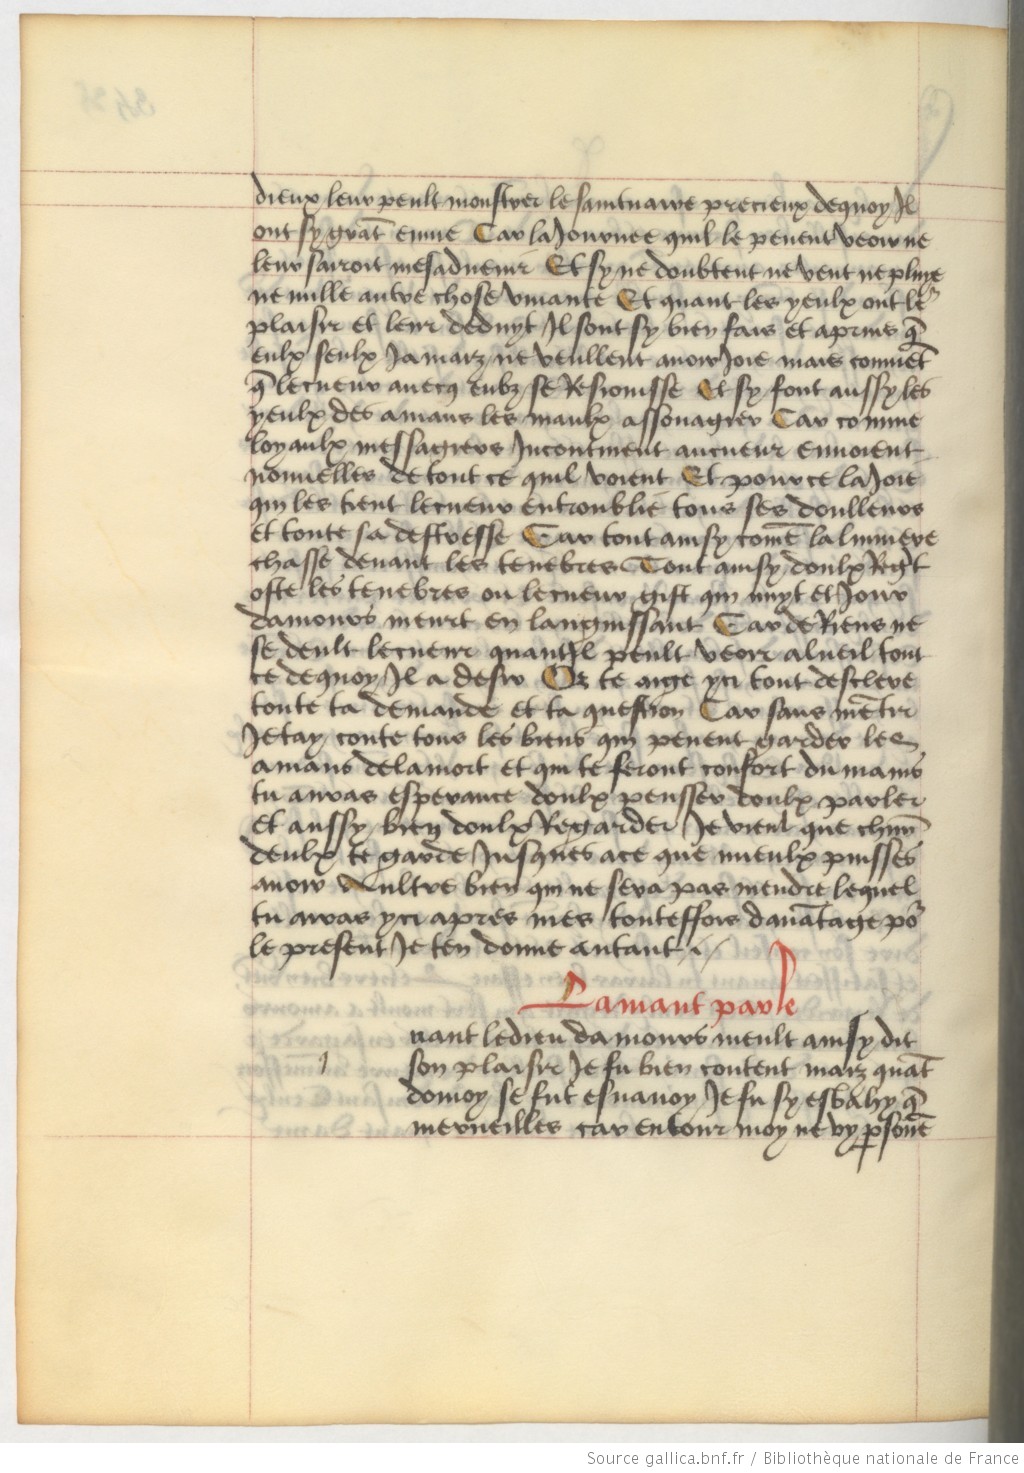 dieux leur peult monstrer le saintuaire precieux dequoy Il
ont sy grāt enuie Car la Journee quil le peuent veoir ne
leur sairoit mesaduenir Et sy ne doubtent ne vent ne pluye
ne nulle autre chose viuante Et quant les yeulx ont le
plaisir et leur deduyt Il sont sy bien fais et aprins q̄
eulx seulx Jamaiz ne veullent auoir Joie mais conuiēt
q̄ le cueur auecq eubz se Resiouisse Et sy font aussy les
yeulx des amans les maulx assouagier Car comme
loyaulx messagiers Incontinent au cueur enuoient
nouuelles de tout ce quil voient Et pour ce la Joie
qui les tient le cueur entroublie tous ses doulleurs
et toute sa destresse Car tout ainsy comē la lumiere
chasse deuant les tenebres Tout ainsy doulx Regͬt
oste les tenebres ou le cueur gist qui nuyt et Jour
damours meurt en languissant Car de Riens ne
se deult le cueur quant Il peult veoir a lueil tout
ce dequoy Il a desir Or te aige yci tout desclere
toute ta demande et ta question Car sans mētir
Je tay conte tous les biens qui peuent garder les
amans de la mort et qui te feront confort du mains
tu auras esperance doulx pensser doulx parler
et aussy bien doulx Regarder Je vieul que chūn
deulx te garde Jusques a ce que mieulx puisses
auoir Aultre bien qui ne sera pas mendre lequel
tu aras yci apres mes touteffois dauātage poͬ
le present Je ten donne autant
Lamant parle
uant le dieu damours meult ainsy dit
son plaisir Je fu bien content maiz quāt
de moy se fut esuanoy Je fu sy esbahy q̄
merueilles car entour moy ne vy ꝑsonē
Source gallica.bnf.fr / Bibliothèque nationale de France